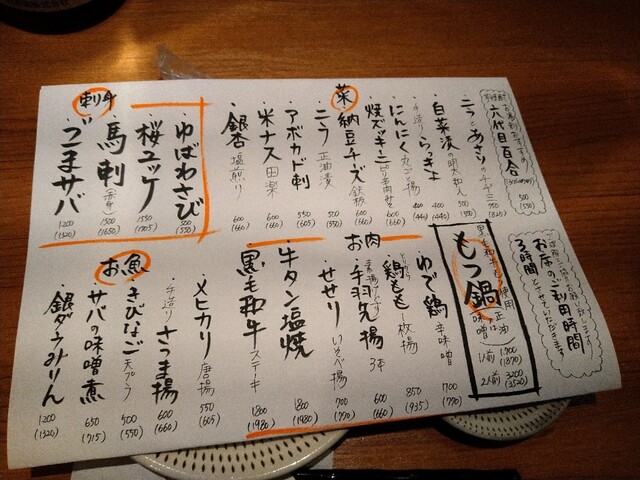 お刺身に合うおすすめの
六代目百合
500
(550)
ニラとあさりのチヂミ
750
(825)
白菜漬の明太和え
500
(550)
手造りらっきょ
400
(440)
にんにく丸ごと揚
400
(440)
焼ズッキーニ
600
(660)
菜
納豆チーズ鉄板
600
(660)
ニラ正油漬
500
(550)
アボカド刺
550
(605)
米ナス田楽
600
(660)
銀杏塩煎り
600
(660)
刺身
ゆばわさび
500
(550)
桜ユッケ
1550
(1705)
馬刺(赤身)
1500
(1650)
ごまサバ
1200
(1320)
お席のご利用時間
3時間とさせていただきます
黒毛和牛もつ使用
もつ鍋
正油又は味噌
1人前 1700
(1870)
2人前 3200
(3520)
お肉
ゆで鶏辛味噌
700
(770)
鶏もも一枚揚
850
(935)
手羽先揚3本
600
(660)
せせりいそべ揚
700
(770)
牛タン塩焼
1800
(1980)
黒毛和牛ステーキ
1800
(1980)
お魚
メヒカリ唐揚
550
(605)
手造りさつま揚
600
(660)
きびなご天プラ
500
(550)
サバの味噌煮
650
(715)
銀ダラみりん
1200
(1320)